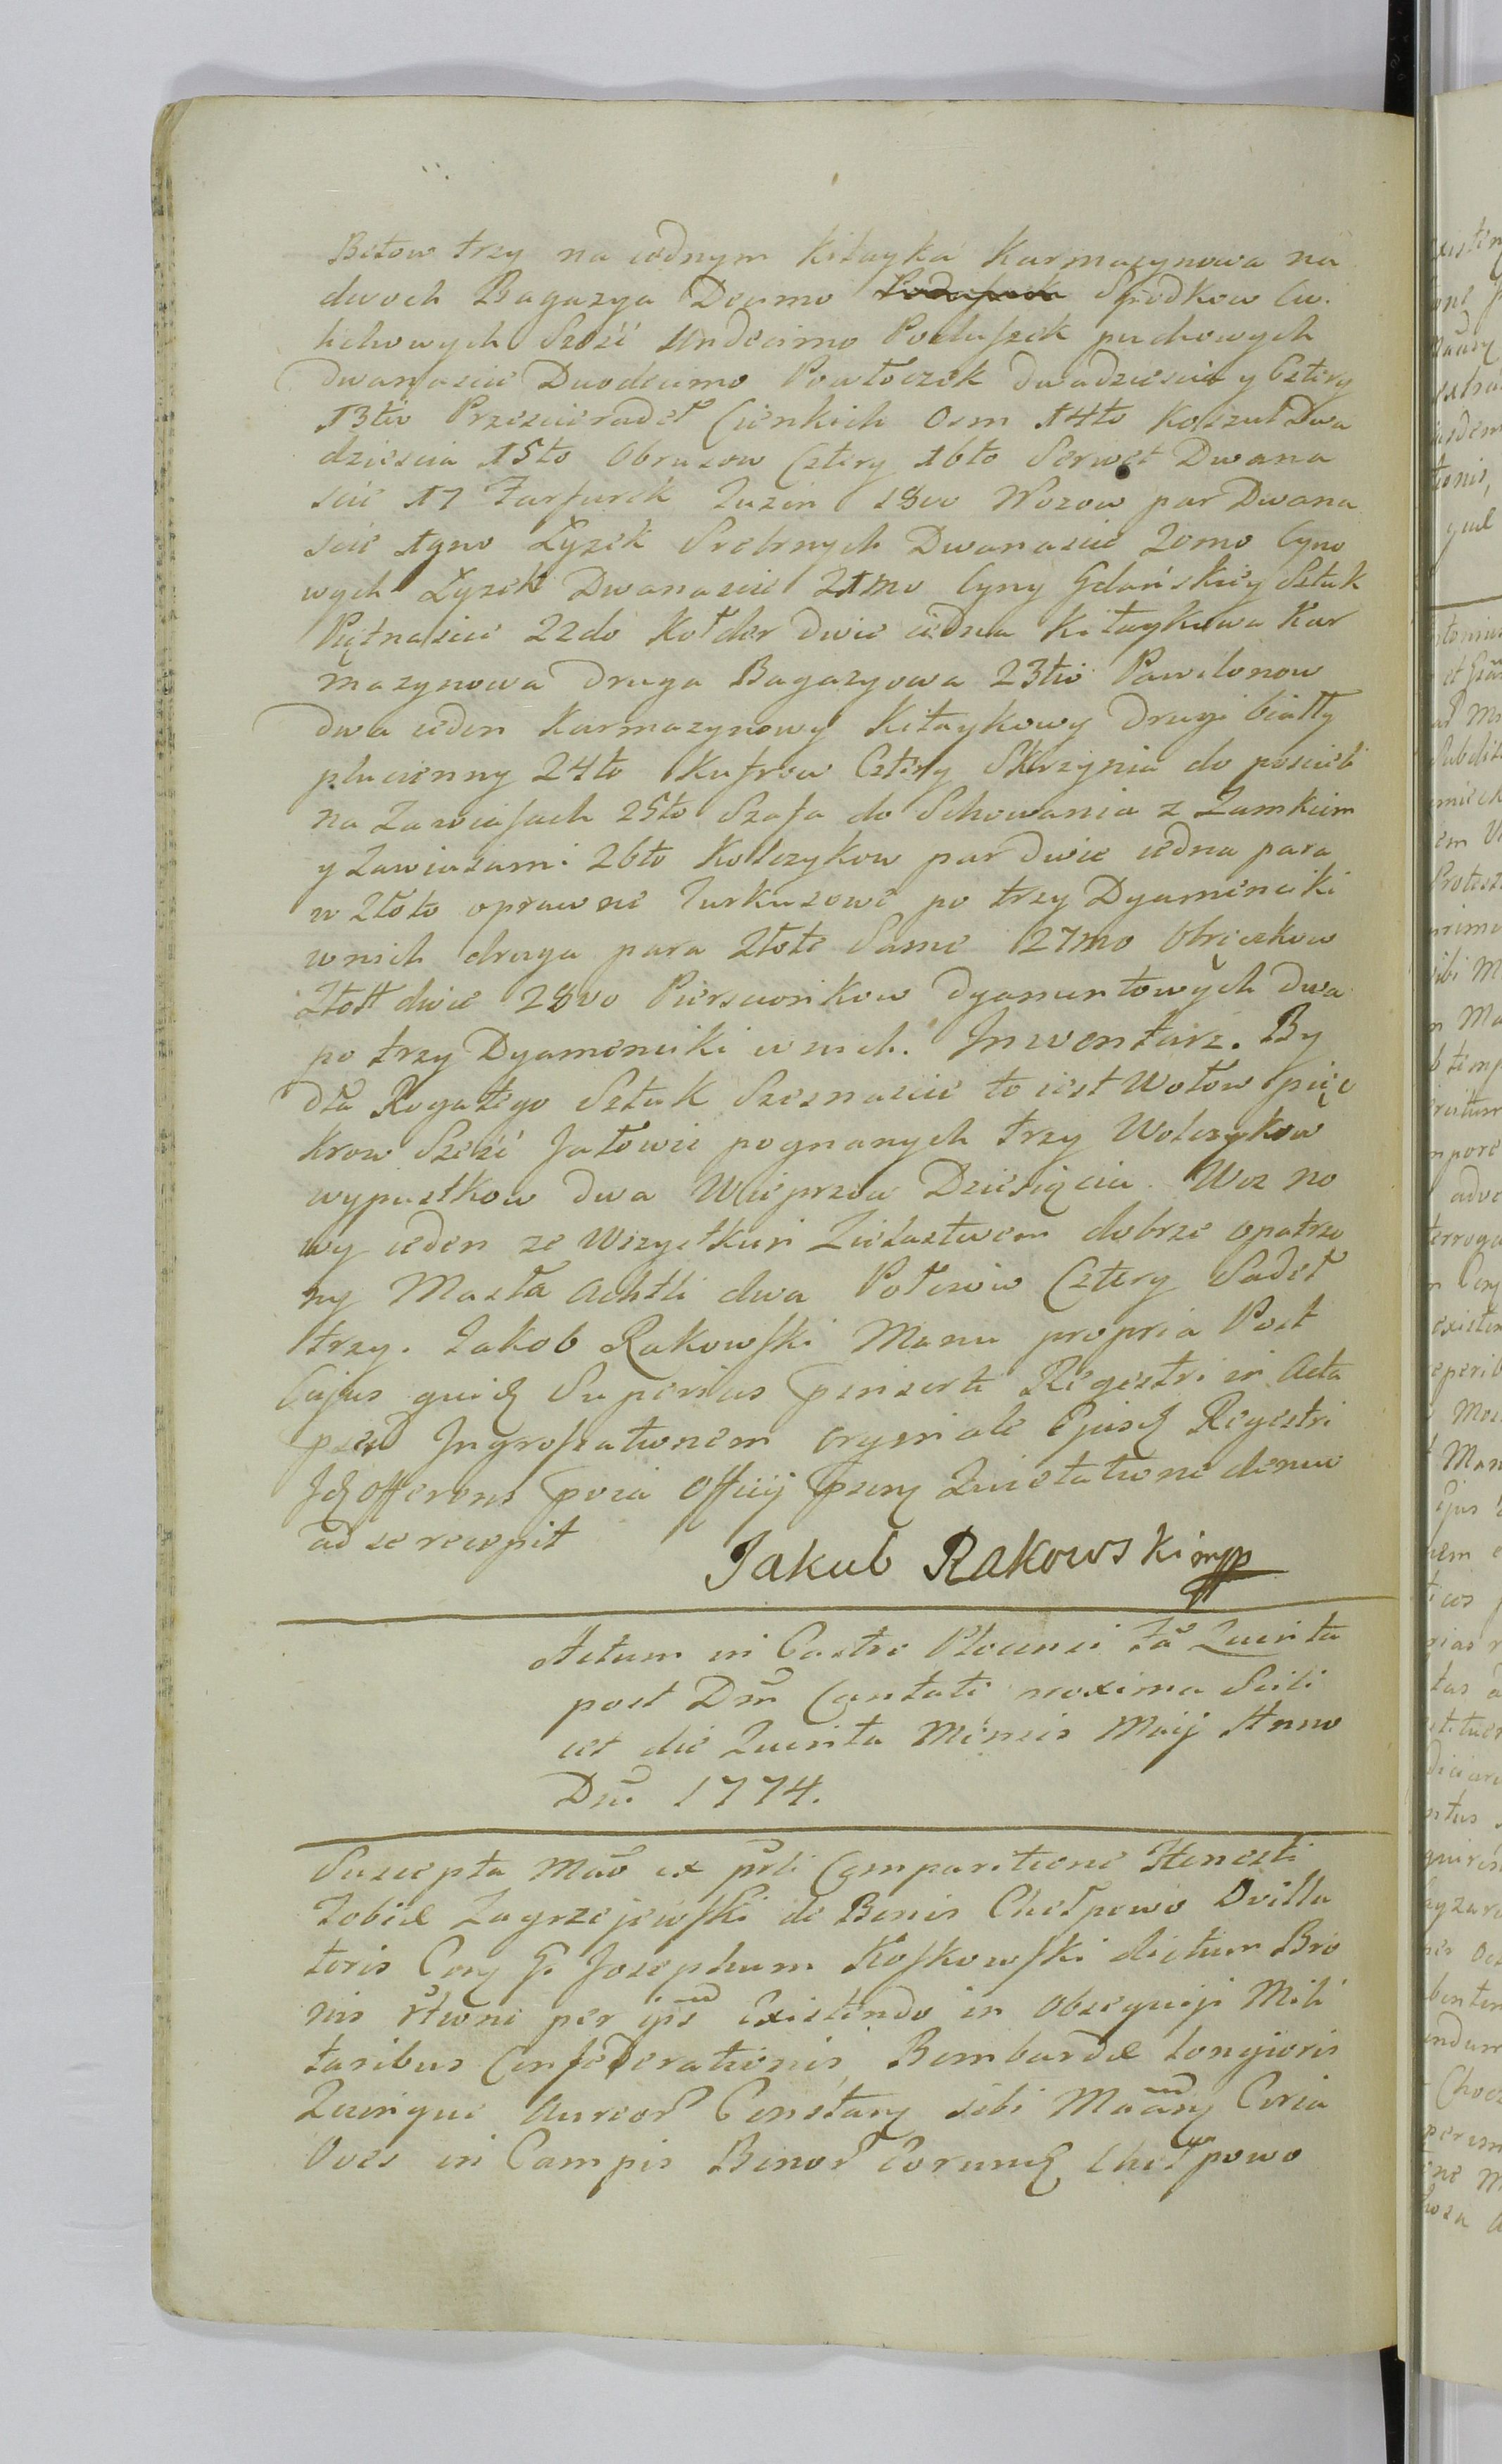 Betow trzy na iednym kitayka Karmazynowa na
dwoch Bagazya Decimo Spodkow Cw.
lichowych Sześć Undecimo Poduszek puchowych
Dwanascie Duodecimo Powłoczek dwadziescia y Cztery
13tio Przescieradeł Cienkich Osm 14to Koszul Dwa
dziescia 15to Obrusow Cztery 16to Serwet Dwana
scie 17 Farfurek Tuzin 18vo Nozow par Dwana
scie 19no Łyzek Srebrnych Dwanascie 20mo Cyno
wych Łyzek Dwanascie 21mo Cyny Gdańskiey Sztuk
Piętnascie 22do Kołder dwie iedna Kitaykowa Kar
mazynowa druga Bagazyowa 23tio Pawilonow
dwa ieden Karmazynowy Kitaykowy drugi biały
płucienny 24to Kufrow Cztery Skrzynia do poscieli
na Zawiasach 25to Szafa do Schowania z Zamkiem
y Zawiasami 26to Kolczykow par dwie iedna para
w Złoto oprawne Turkusowe po trzy Dyamenciki
wnich druga para Złote Same 27mo Obrączkow
Złott dwie 28vo Pierscionkow dyamentowych dwa
po trzy Dyamenciki wnich. Inwentarz. By
dła Rogatego Sztuk Szesnascie to iest Wołow pięc
krow Sześć Jałowic pognanych trzy Wolczykow
wypustkow dwa Wieprzow Dziesięcia. Woz no
wy ieden ze Wszystkim Zielastwem dobrze opatrzo
ny Masła Achtli dwa Połciow Cztery Sadeł
trzy. Jakob Rakowski Manu propria Post
Cujus quidz Superius pinserti Regestri in Acta
pntia Ingrossationem orginale Ejusdz Regestri
Idz Offerens pocia Officij psenz Quietatione denuo
ad se recepit
Jakub Rakowski mpp
Actum in Castro Plocensi fa Quinta
post Dm̃ Cantate proxima Scili
cet die Quinta Mensis Maij Anno
Dni 1774.
Suscepta Mãō ex pŝli Comparitione Honesti
Tobiæ Zagrzejewski de Bonis Chełpowo Ovilla
toris Conz G. Josephum Koskowski dictum Bro
nis rŧione per ips̃ Existendo in Obsequiji Mili
taribus Confœderationis Bombardæ longioris
Quinque Aureor Constanz sibi Mãanz Circa
Oves in Campis Bonor Eorumdz Chełpowo